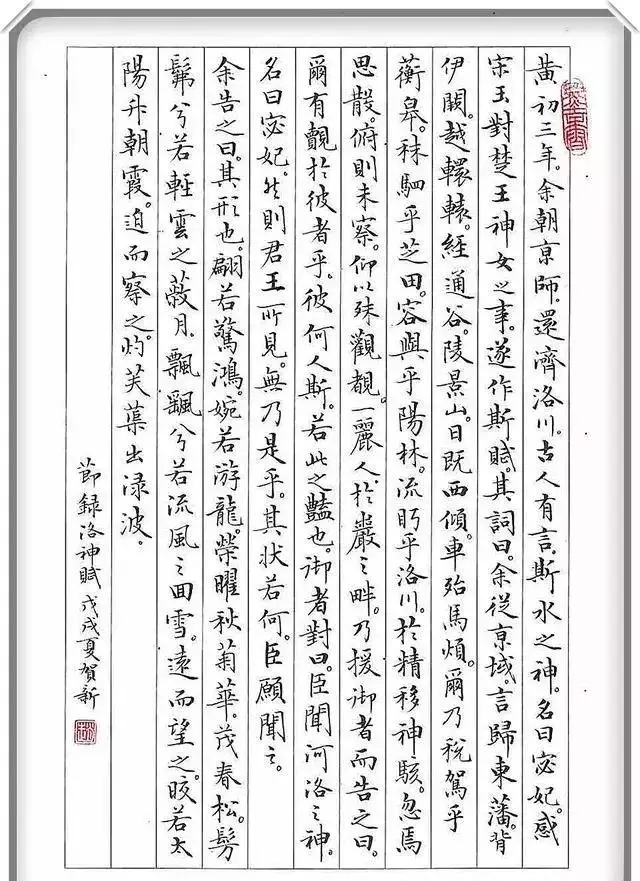 黄初三年。余朝京師。還濟洛川。古人有言。斯水之神。名曰宓妃。感
宋玉對楚王神女之事。遂作斯賦。其詞曰。余從京域。言歸東藩。背
伊闕。越轘轅。經通谷。陵景山。日既西傾。車殆馬煩。爾乃稅駕乎
蘅皋。秣駟乎芝田。容與乎陽林。流眄乎洛川。於精移神駭。忽焉
思散。俯則未察。仰以殊觀。覩一麗人。於巖之畔。乃援御者而告之曰。
爾有覿於彼者乎。彼何人斯。若此之豔也。御者對曰。臣聞河洛之神。
名曰宓妃。然則君王所見。無乃是乎。其状若何。臣願聞之。
余告之曰。其形也。翩若驚鴻。婉若游龍。榮曜秋菊。華茂春松。髣
髴兮若輕雲之蔽月。飄颻兮若流風之回雪。遠而望之。皎若太
陽升朝霞。迫而察之。灼芙蕖出渌波。
節録洛神賦 戊戌夏賀新